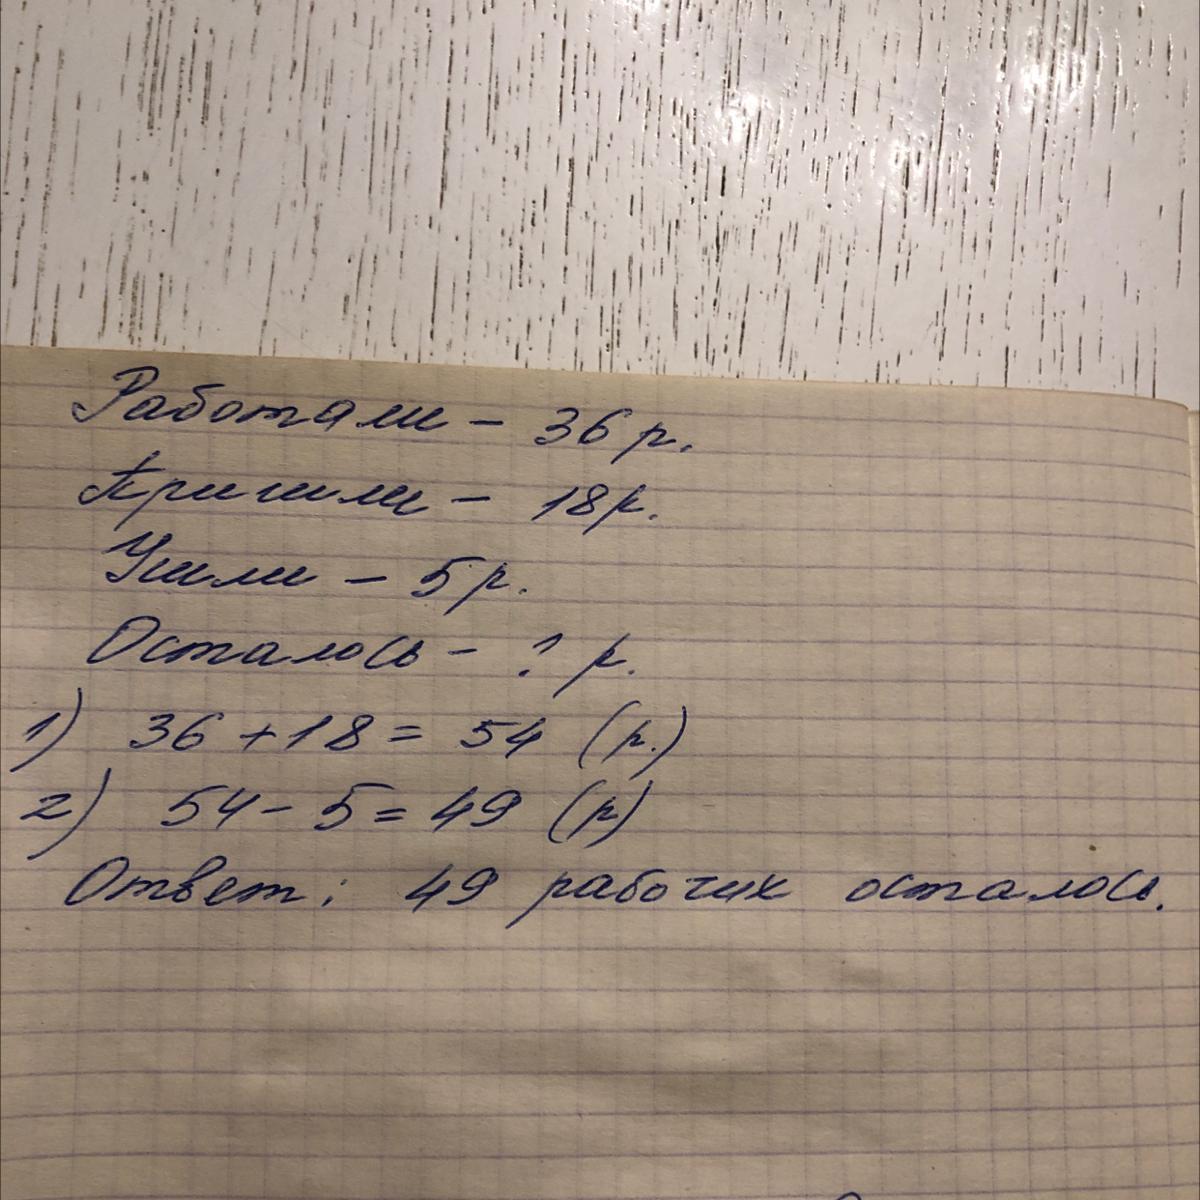 Работали - 36 р.
Пришли - 18 р.
Ушли - 5 р.
Осталось - ? р.
1) 36 + 18 = 54 (р.)
2) 54 - 5 = 49 (р)
Ответ: 49 рабочих осталось.